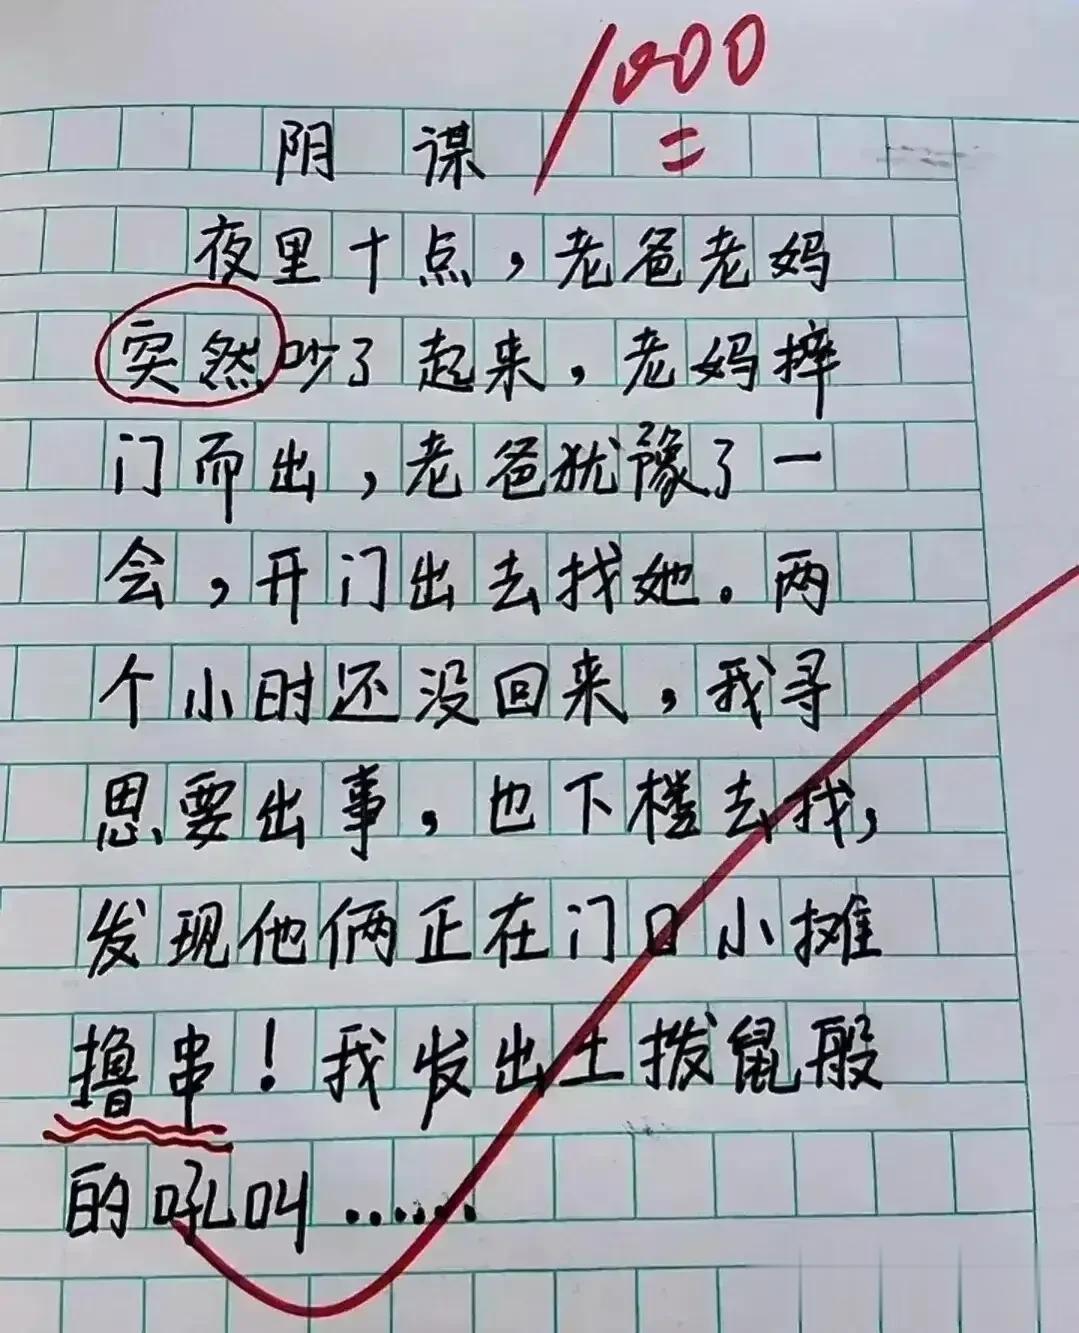 1000
阴谋
夜里十点，老爸老妈
突然吵了起来，老妈摔
门而出，老爸犹豫了一
会，开门出去找她。两
个小时还没回来，我寻
思要出事，也下楼去找，
发现他俩正在门口小摊
撸串！我发出土拨鼠般
的吼叫……